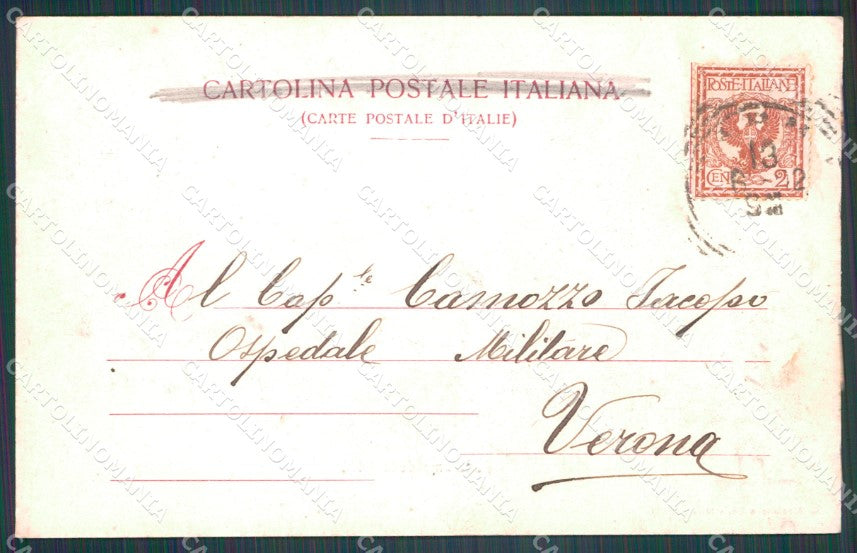 CARTOLINA POSTALE ITALIANA
(CARTE POSTALE D'ITALIE)
POSTE·ITALIANE
CENT 2
13
Al Cap.le Camozzo Jacopo
Ospedale Militare
Verona
CARTOLINOMANIA